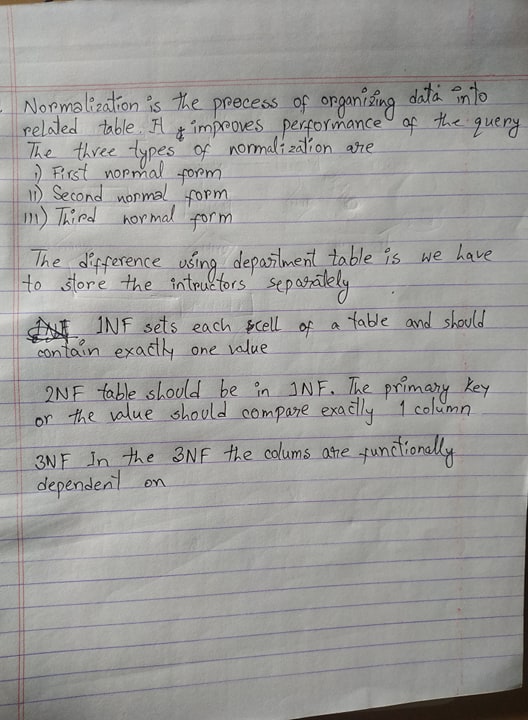 Normalization is the process of organizing data into
related table. It improves performance of the query
The three types of normalization are
i) First normal form
ii) Second normal form
iii) Third normal form
The difference using department table is we have
to store the intructors separately
1NF sets each cell of a table and should
contain exactly one value
2NF table should be in 1NF. The primary key
or the value should compare exactly 1 column
3NF In the 3NF the colums are functionally
dependent on